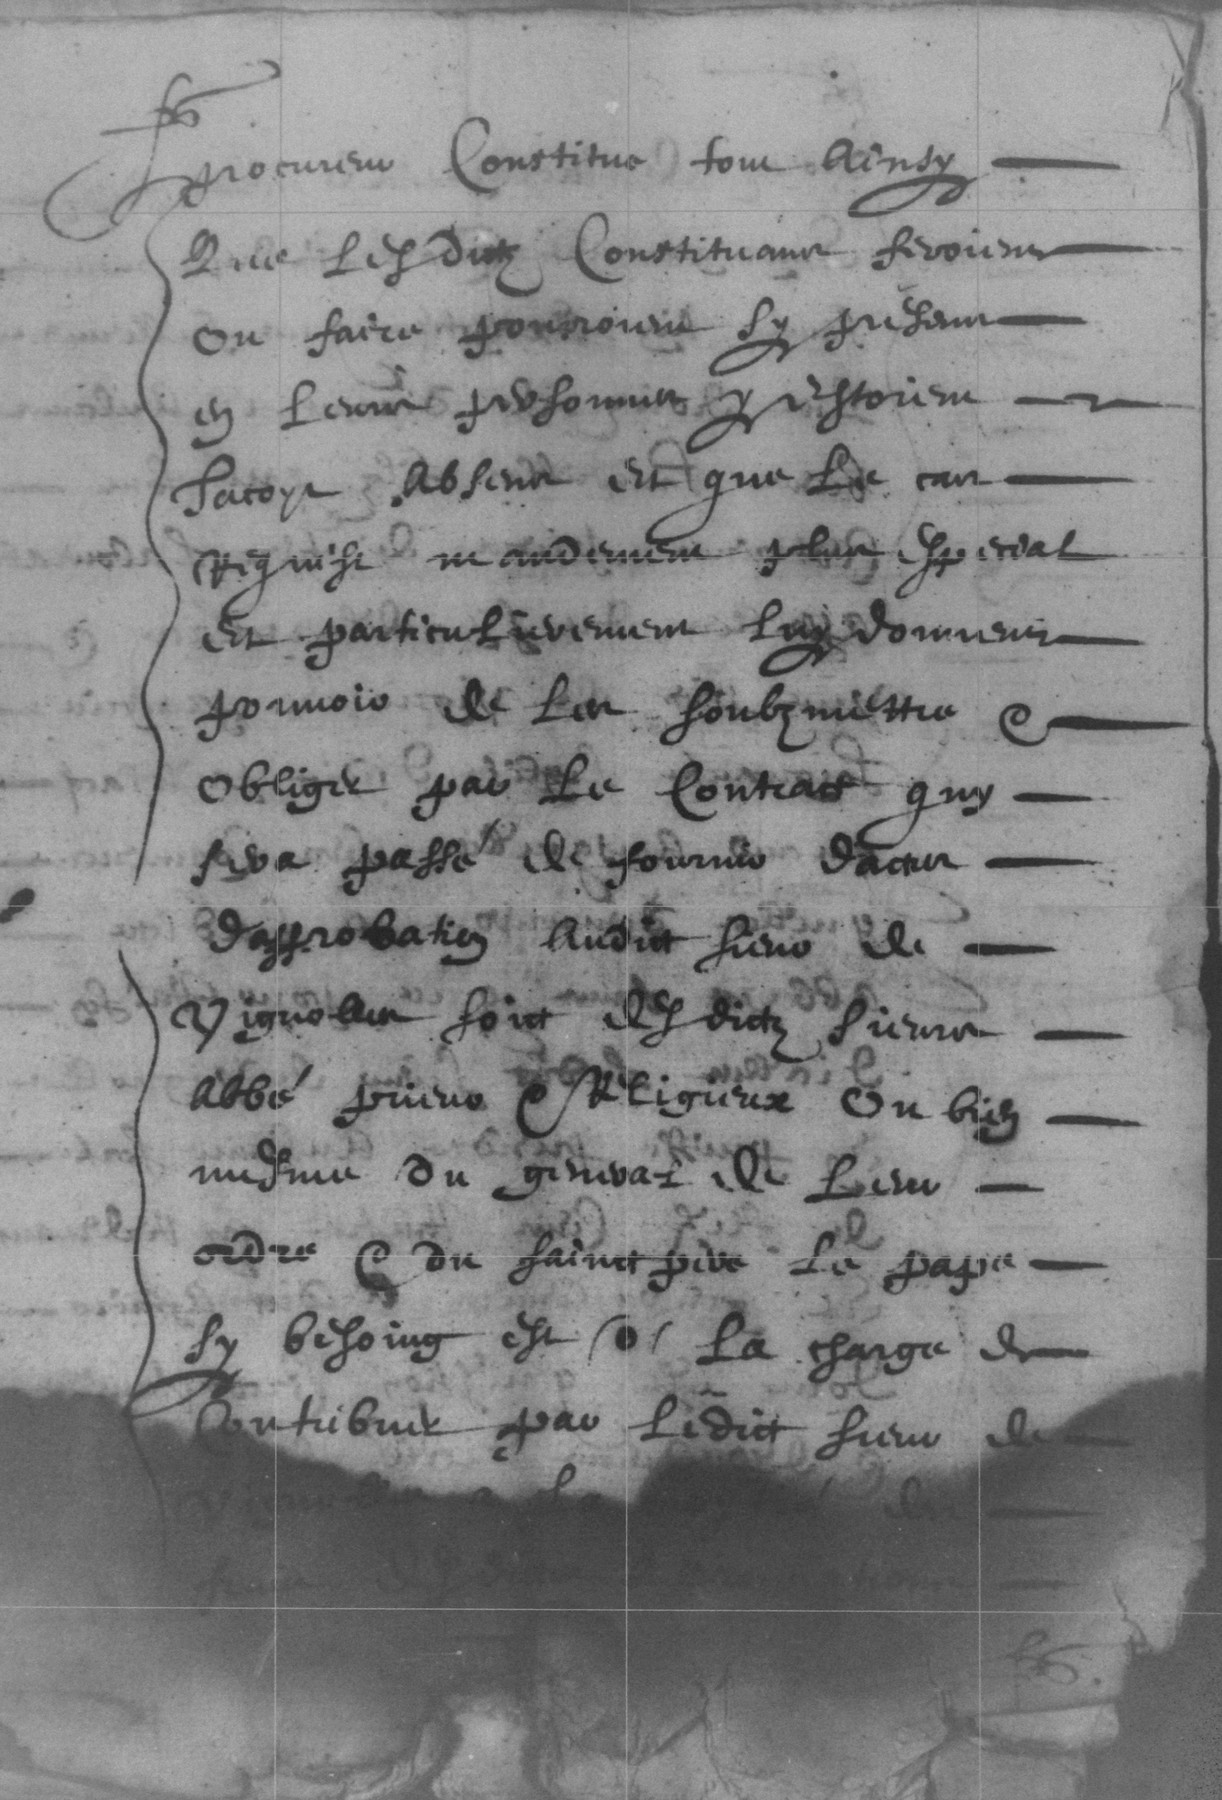 procureur Constitué tout Ainsy
Que Lesdictz Constituans feroient
Ou faire pourroient sy présens
en Leurs personnes y estoient
Jacoyt Absens Et que Le cas
Requist mandement plus espécial
Et particulièrement Luy donnent
pouvoir de Les soubzmettre &
Obliger par Le Contract quy
sera passé de fournir d'actes
d'approbation Audict sieur de
Vignolles soict desdictz sieurs
Abbé prieur & Religieux Ou bien
mesme du general de Leur
ordre & du sainct pere Le pape
sy besoing est La charge de
Contribuer par Ledict sieur de
Vignolles a La des